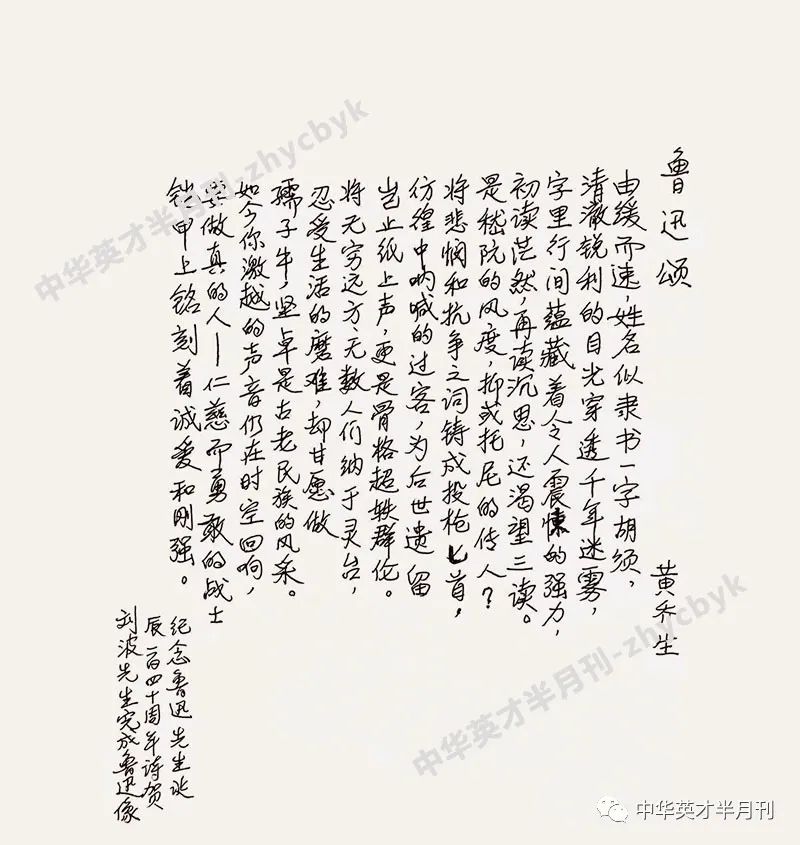 鲁迅颂
黄乔生
由缓而速，姓名似隶书一字胡须，
清澈锐利的目光穿透千年迷雾，
字里行间蕴藏着令人震悚的强力，
初读茫然，再读沉思，还渴望三读。
是嵇阮的风度，抑或托尼的传人？
将悲悯和抗争之词铸成投枪匕首，
彷徨中呐喊的过客，为后世遗留
岂止纸上声，更是骨格超轶群伦。
将无穷远方、无数人们纳于灵台，
忍受生活的磨难，却甘愿做
孺子牛，坚卓是古老民族的风采。
如今你激越的声音仍在时空回响，
要做真的人——仁慈而勇敢的战士
铠甲上铭刻着诚爱和刚强。
纪念鲁迅先生诞
辰一百四十周年诗贺
刘波先生完成鲁迅像
中华英才半月刊-zhycbyk
中华英才半月刊-zhycbyk
中华英才半月刊